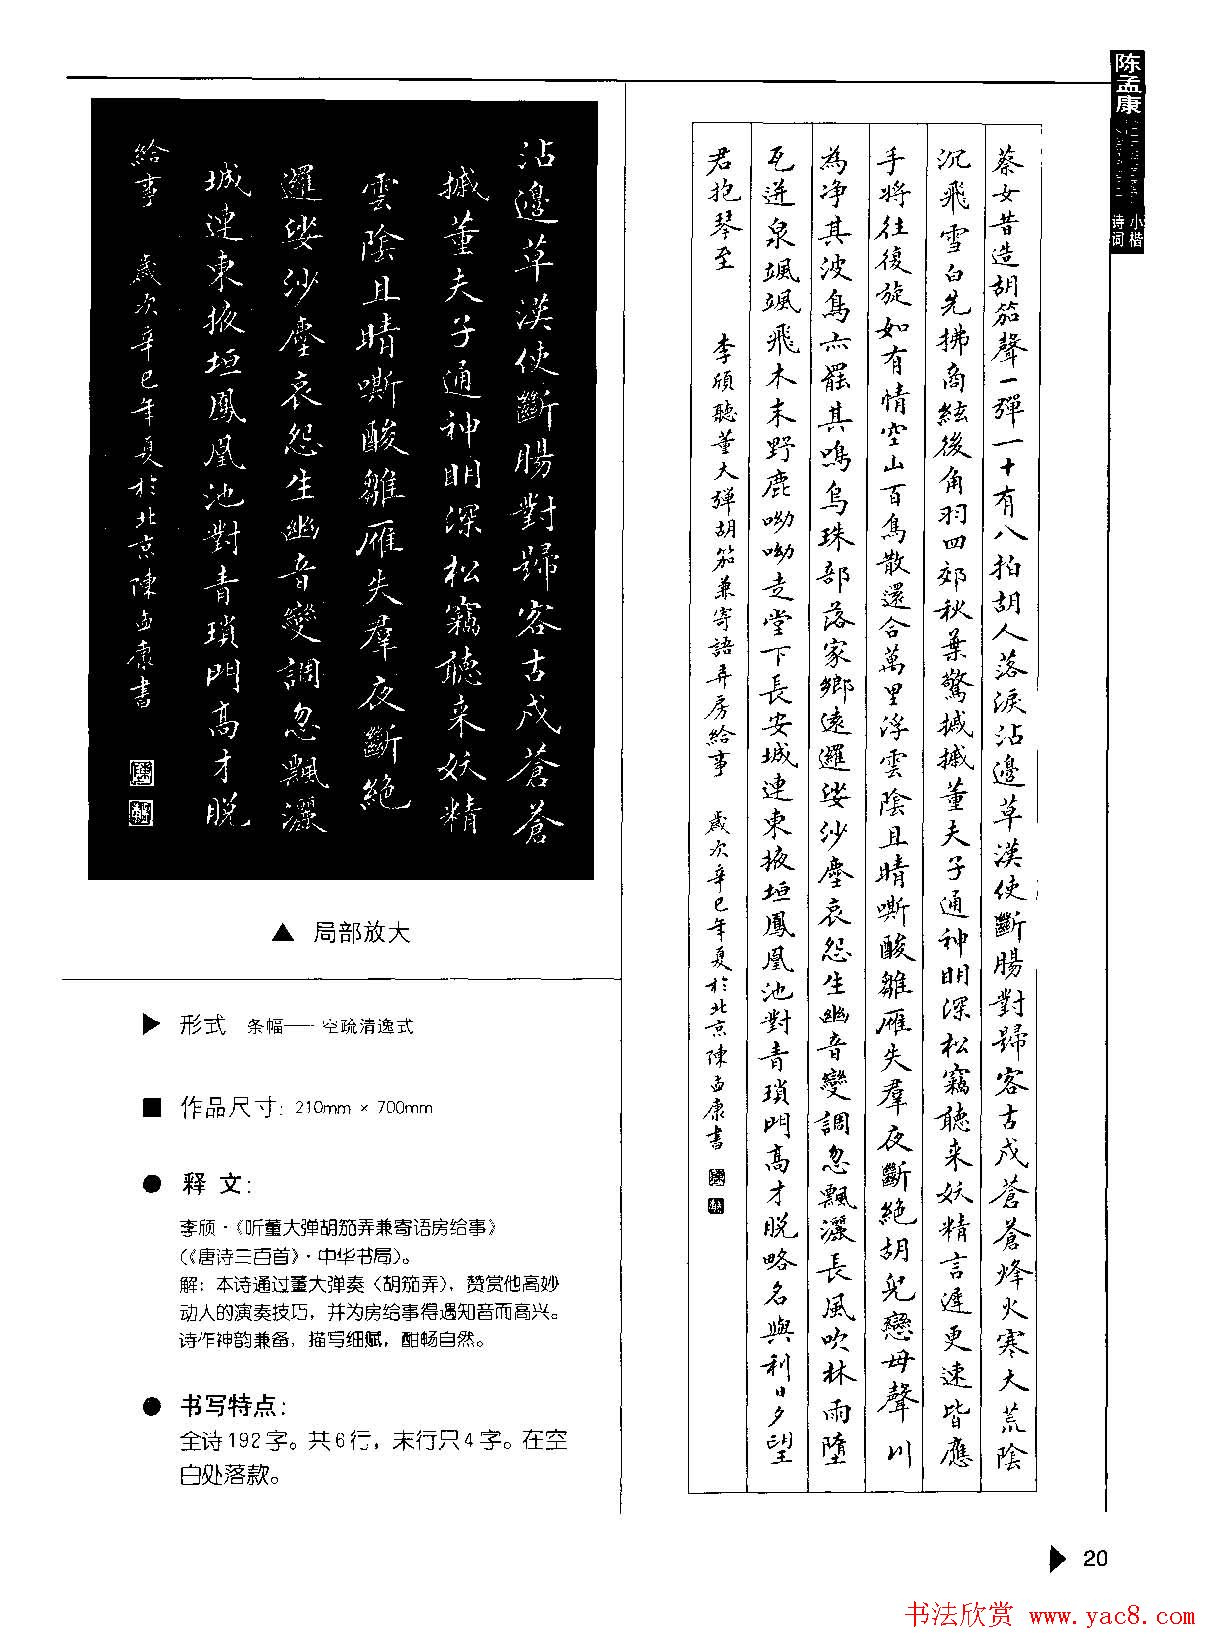 陈孟康
小楷
诗词
沾邊草漢使斷腸對歸客古戍蒼蒼
摵董夫子通神明深松竊聽来妖精
雲陰且晴嘶酸雛雁失羣夜斷絕
邏娑沙塵哀怨生幽音變調忽飄灑
城連東掖垣鳳凰池對青瑣門高才脱
給事 歲次辛巳年夏於北京陳孟康書
▲ 局部放大
▶ 形式 条幅——空疏清逸式
■ 作品尺寸: 210mm × 700mm
● 释 文:
李颀·《听董大弹胡笳弄兼寄语房给事》
(《唐诗三百首》·中华书局)。
解: 本诗通过董大弹奏〈胡笳弄〉, 赞赏他高妙
动人的演奏技巧, 并为房给事得遇知音而高兴。
诗作神韵兼备, 描写细腻, 酣畅自然。
● 书写特点:
全诗192字。共6行, 末行只4字。在空
白处落款。
蔡女昔造胡笳聲一彈一十有八拍胡人落淚沾邊草漢使斷腸對歸客古戍蒼蒼烽火寒大荒陰
沉飛雪白先拂商絃後角羽四郊秋葉驚摵摵董夫子通神明深松竊聽来妖精言遲更速皆應
手將往復旋如有情空山百鳥散還合萬里浮雲陰且晴嘶酸雛雁失羣夜斷絕胡兒戀母聲川
為净其波鳥亦罷其鳴烏珠部落家鄉遠邏娑沙塵哀怨生幽音變調忽飄灑長風吹林雨墮
瓦迸泉颯颯飛木末野鹿呦呦走堂下長安城連東掖垣鳳凰池對青瑣門高才脱略名與利日夕望
君抱琴至 李頎聽董大彈胡笳兼寄語弄房給事 歲次辛巳年夏於北京陳孟康書
▶ 20
书法欣赏 www.yac8.com